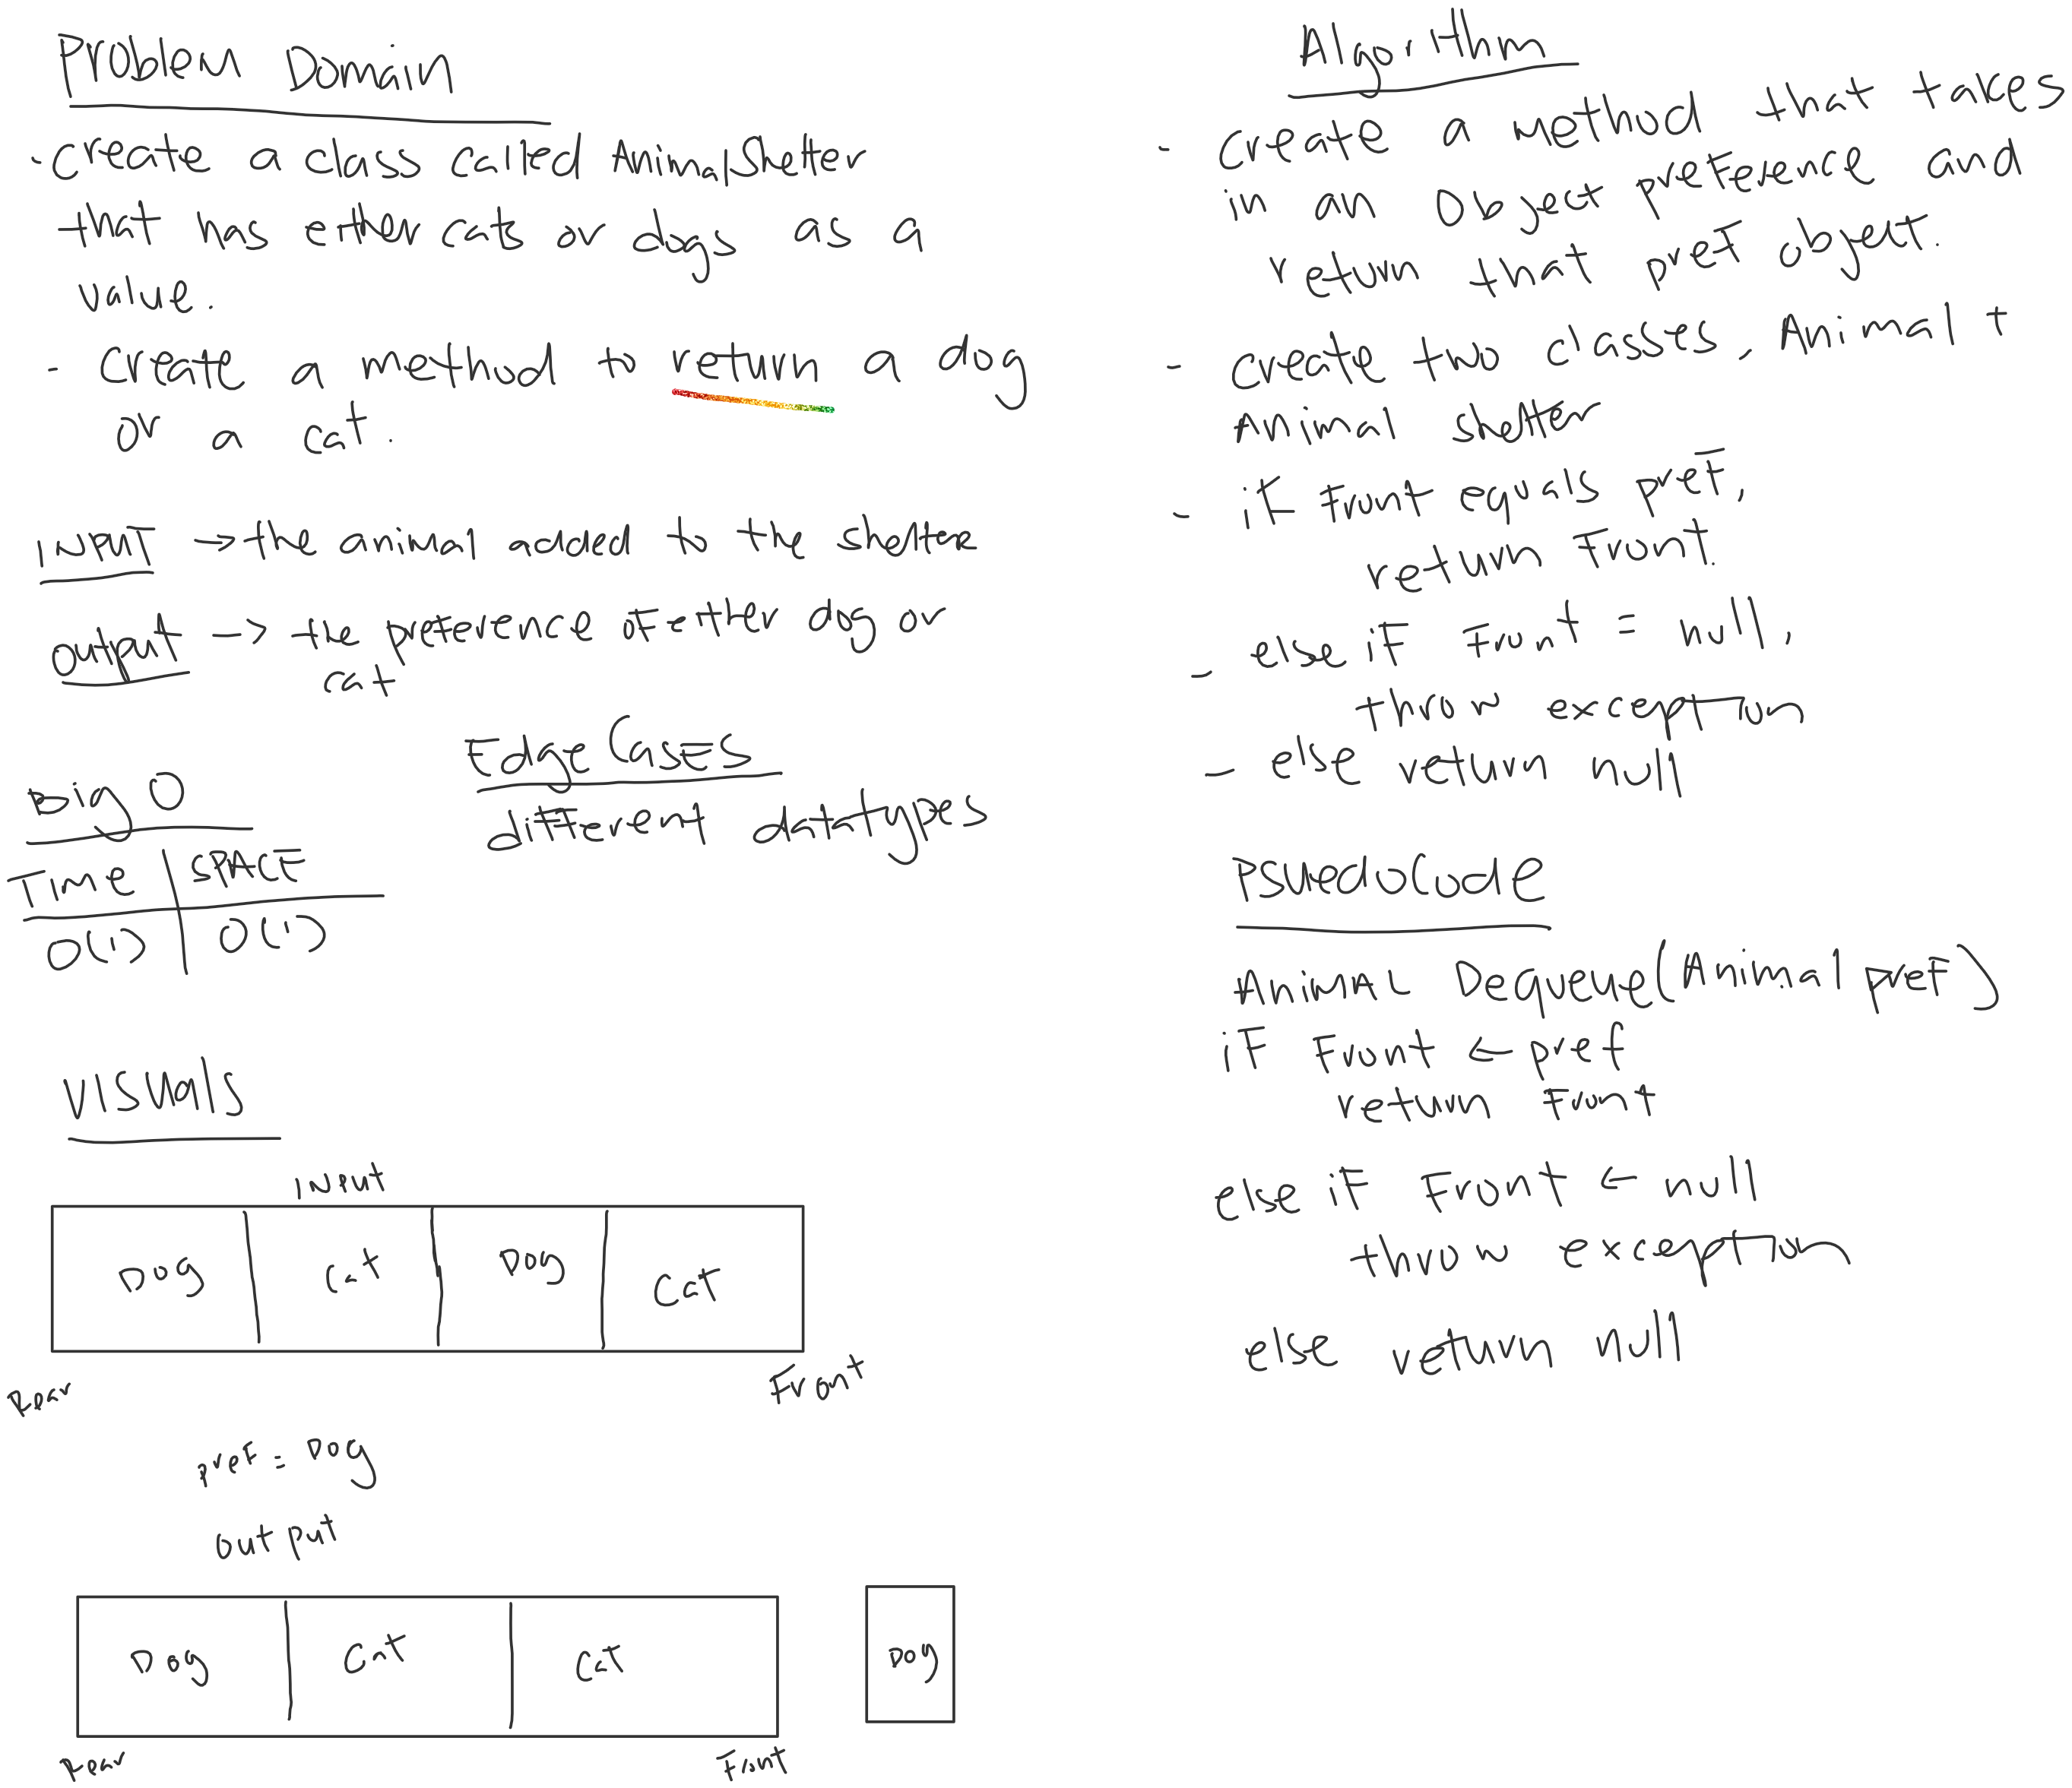 Problem Domain
- create a class called AnimalShelter
that has either cats or dogs as a
value.
- create a method to return a dog
or a cat.
INPUT -> the animal added to the shelter
Output -> the preference of either dog or
cat
Edge Cases
different datatypes
Big O
Time | SPACE
O(1) | O(1)
Visuals
Input
Dog Cat Dog Cat
Rear Front
pref = Dog
output
Dog Cat Cat Dog
Rear Front
Algorithm
- create a method that takes
in an Object preference and
return that pref object.
- create two classes, Animal +
Animal shelter
- if front equals pref,
return Front.
- else if front = null,
throw exception
- else return null
PSUEDOCode
Animal Dequeue(Animal pref)
if Front <- pref
return Front
else if Front <- null
throw exception
else return null